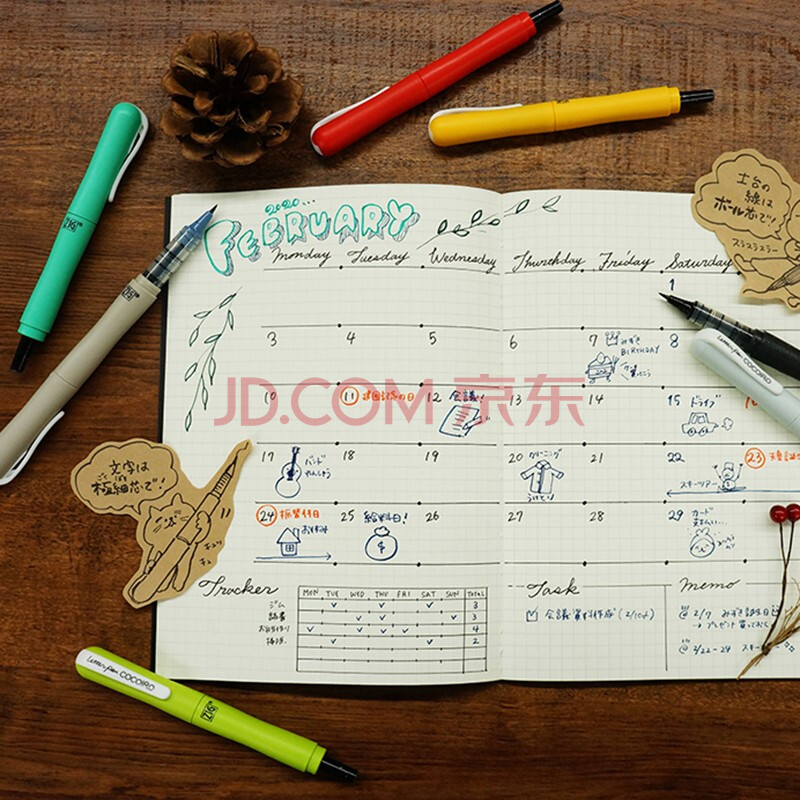 2020...
FEBRUARY
Monday Tuesday Wednesday Thurthday Friday Saturday
1
3 4 5 6 7 みずき BIRTHDAY 8
10 11 建国記念の日 12 会議! 13 14 15 ドライブ 16
17 バンド 18 19 20 クリーニング 21 22 スキーツアー 23
24 振替休日 25 給料日! 26 27 28 29 カード
JD.COM 京东
土台の
線は
ボール芯で!
スラスラスラ〜
文字は
極細芯で!
Tracker
MON TUE WED THU FRI SAT SUN TOTAL
ジム 3
読書 3
4
掃除 2
Task
会議資料作成
Memo
2/7 みずき誕生日
→プレゼント買っておく
2/22-24 スキー
ZIG
ZIG
ZIG
Letter pen COCOIRO
Letter pen COCOIRO